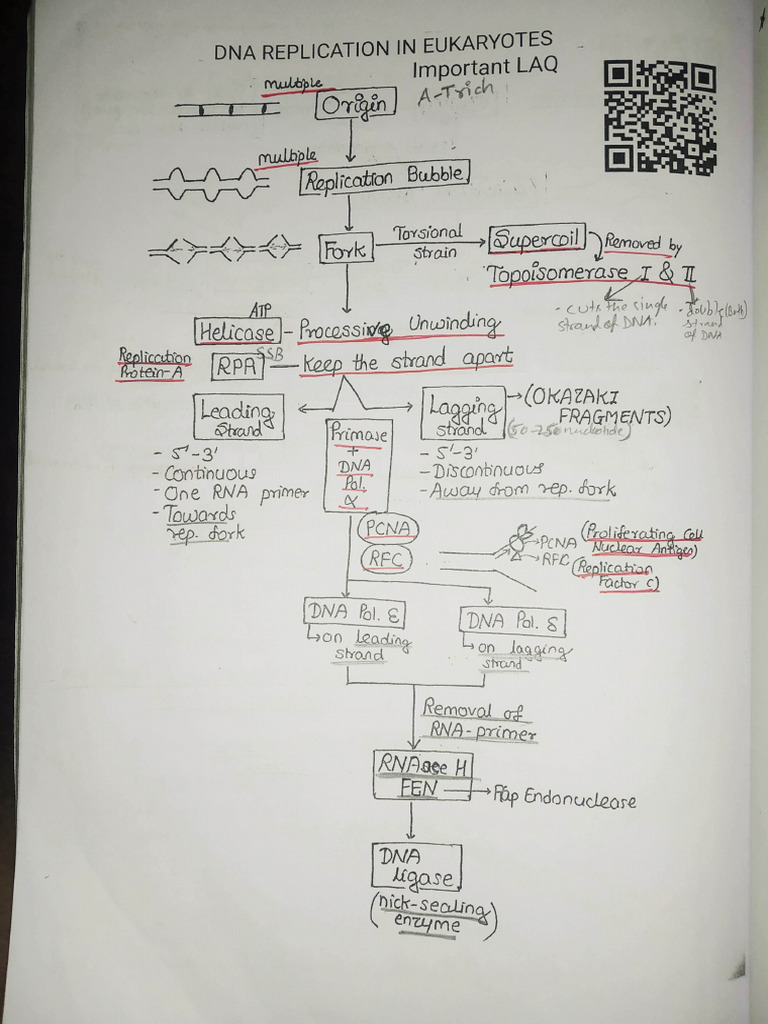 DNA REPLICATION IN EUKARYOTES
Important LAQ
multiple
Origin
A-Trich
multiple
Replication Bubble
Fork
Torsional
strain
Supercoil
Removed by
Topoisomerase I & II
- cuts the single
strand of DNA.
- double (Both)
strand
of DNA
ATP
Helicase - Processive Unwinding
Replication
Protein-A
RPA
SSB
Keep the strand apart
Leading
Strand
- 5'-3'
- Continuous
- One RNA primer
- Towards
rep. fork
Primase
+
DNA
Pol.
α
Lagging
strand
(OKAZAKI
FRAGMENTS)
(50-250 nucleotide)
- 5'-3'
- Discontinuous
- Away from rep. fork
PCNA
RFC
PCNA (Proliferating Cell
Nuclear Antigen)
RFC (Replication
Factor C)
DNA Pol. ε
on leading
strand
DNA Pol. δ
on lagging
strand
Removal of
RNA-primer
RNAase H
FEN
Flap Endonuclease
DNA
ligase
(nick-sealing
enzyme)